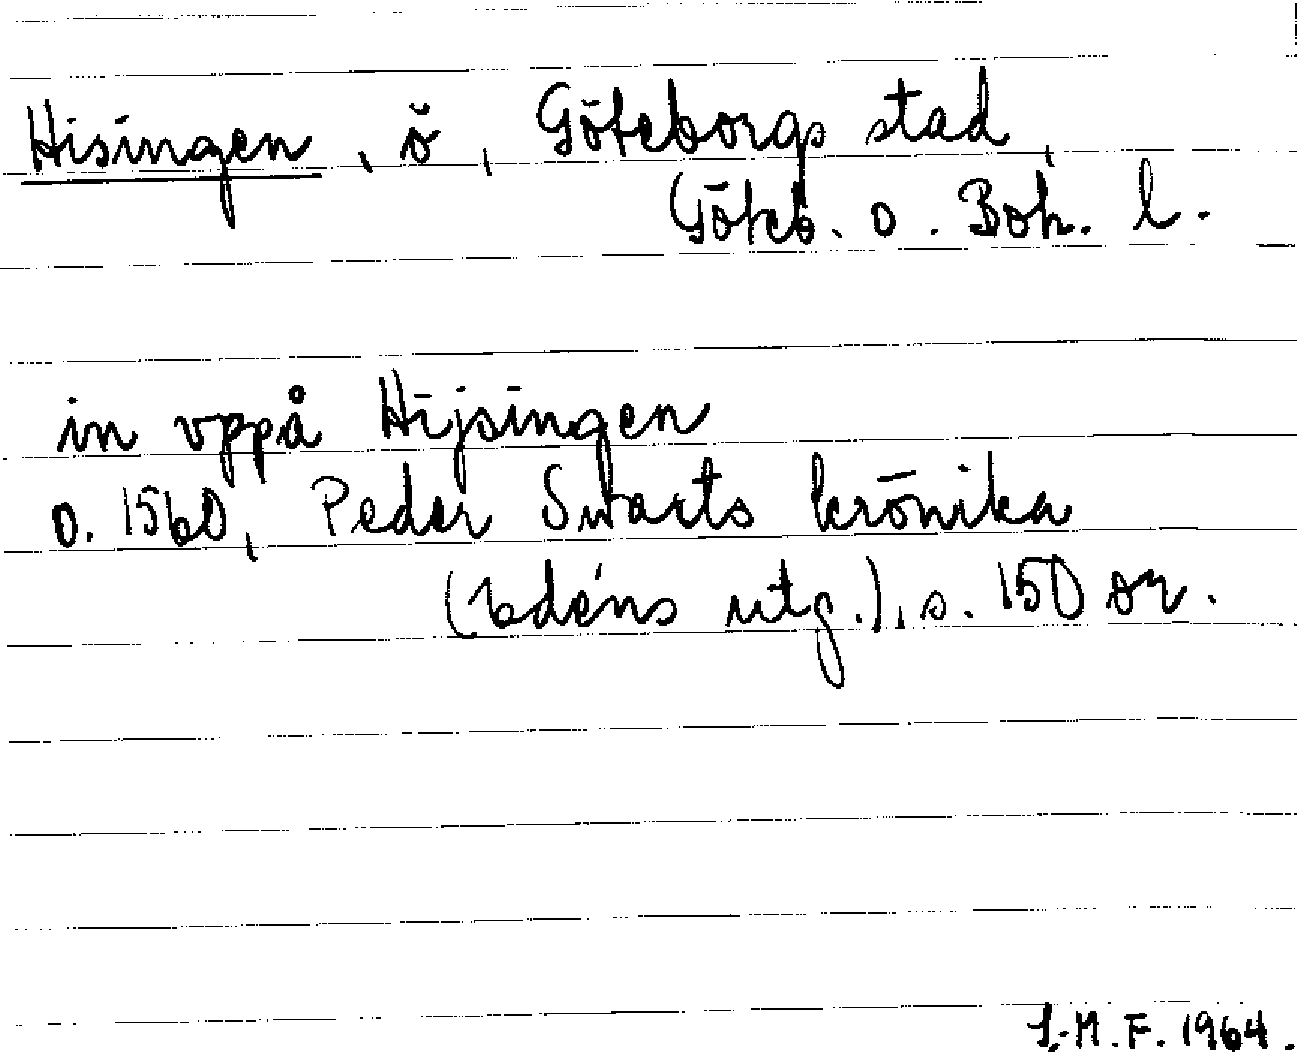 Hisingen, ö, Göteborgs stad,
Göteb. o. Boh. l.
in vppå Hijsingen
o. 1560, Peder Swarts krönika
(Edéns utg.), s. 150 or.
M. F. 1964.